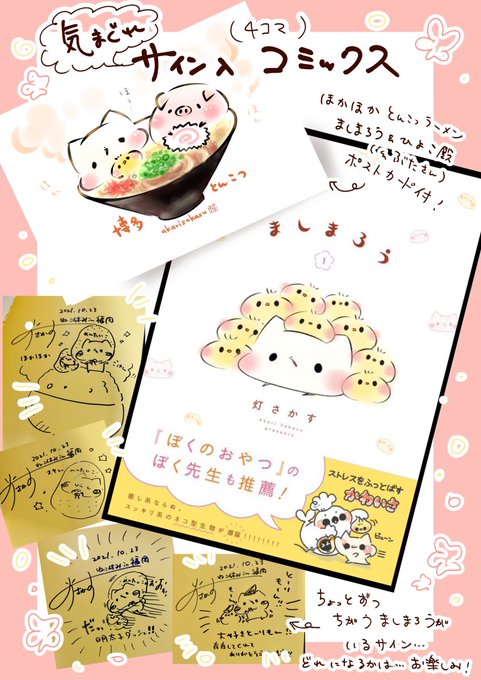 気まぐれ
サイン入
(4コマ)
コミックス
ほかほか とんこつラーメン
ましまろう&ひよこ殿
ポストカード付!
ほかほか
博多
とんこつ
akarisakasu
ましまろう
1
灯さかす
akari sakasu
presents
『ぼくのおやつ』の
ぼく先生も推薦!
癒し系ならぬ、
スッキリ系のネコ型生物が爆誕!!!!!!!!
ストレスをふっとばす
かわいさ
2021.10.23
ぬこ休み in 福岡
ほかほか
2021.10.23
ぬこ休み in 福岡
2021.10.23
ぬこ休み in 福岡
明太子ダッシュ!!
2021.10.23
ぬこ休み in 福岡
ちょっとずつ
ちがうましまろうが
いるサイン…
どれになるかは…お楽しみ!